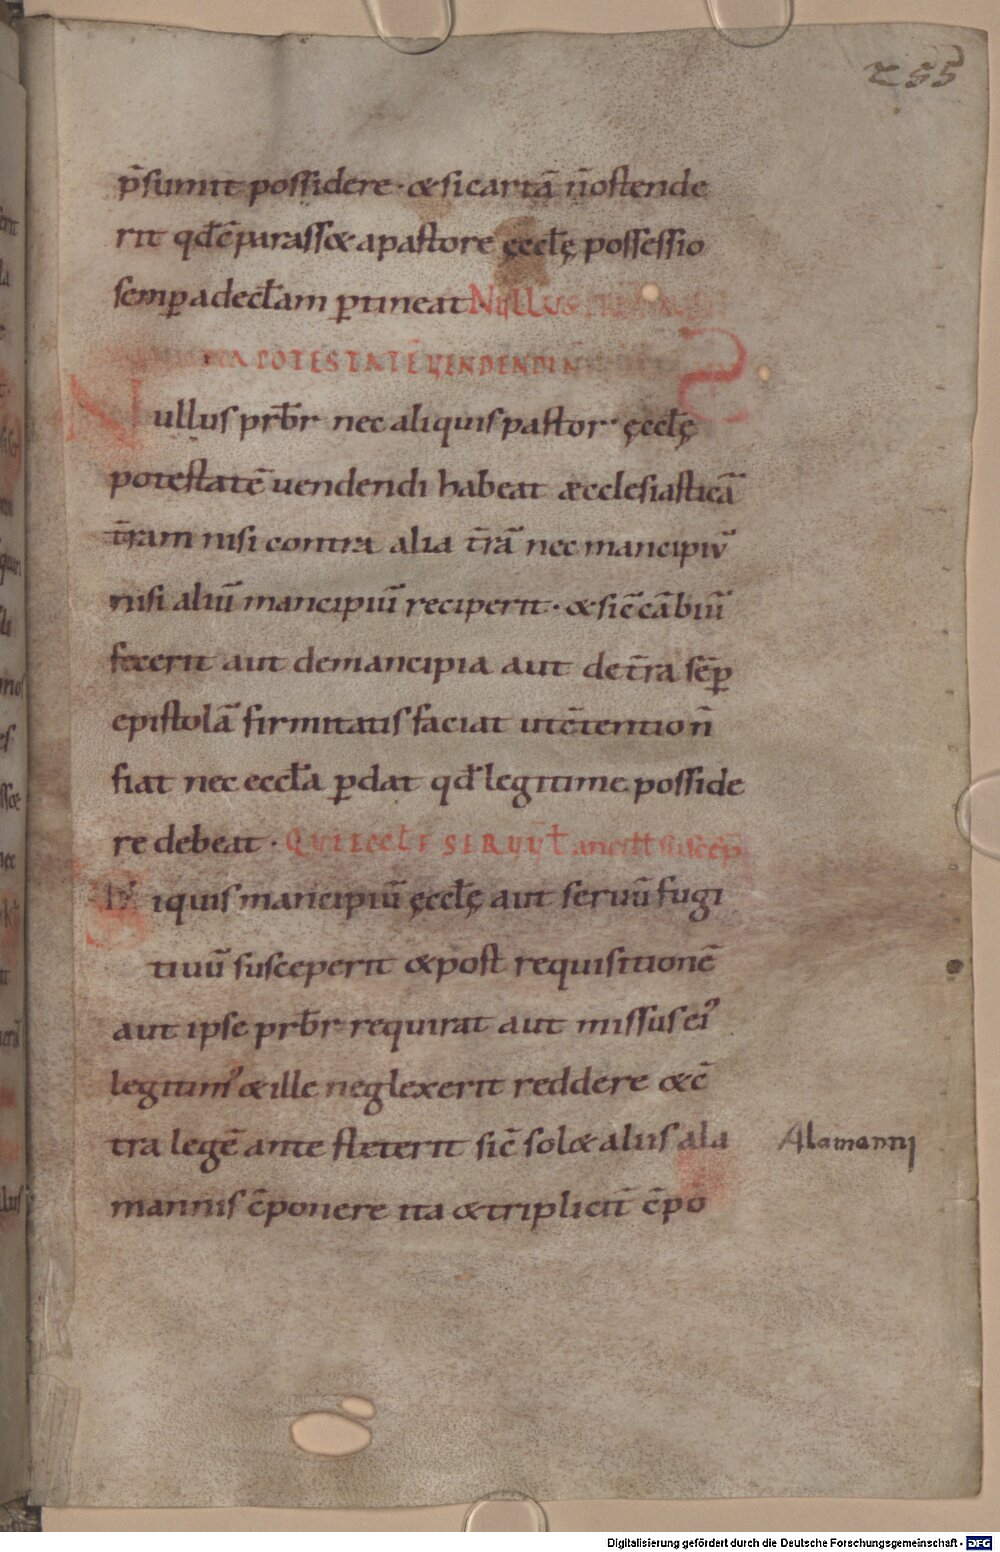 255
p̄sumit possidere · & si cartā n̄ ostende
rit qđ cōparass& a pastore ęccłę possessio
semp̱ ad eccłam p̱tineat NULLUS
POTESTATĒ VENDENDI
Nullus prb̄r nec aliquis pastor ęccłę
potestatē uendendi habeat æcclesiasticā
t̄ram nisi contra alia t̄rā nec mancipiū
nisi aliū mancipiū reciperit · & si c̄cābiū
fecerit aut de mancipia aut de t̄ra sēp̱
epistolā firmitatis faciat ut c̄tention̄
fiat nec eccła p̱dat qđ legitime posside
re debeat · QUI ECCŁ SERUŪ ł ancill suscep̄
iquis mancipiū ęccłę aut seruū fugi
tiuū susceperit & post requisitionē
aut ipse prb̄r requirat aut missus ei᾽
legitim᾽ & ille neglexerit reddere & c̄
tra legē ante steterit sic̄ sol& aliis ala
Alamanni
mannis c̄ponere ita & tripliciī c̄po
Digitalisierung gefördert durch die Deutsche Forschungsgemeinschaft - DFG